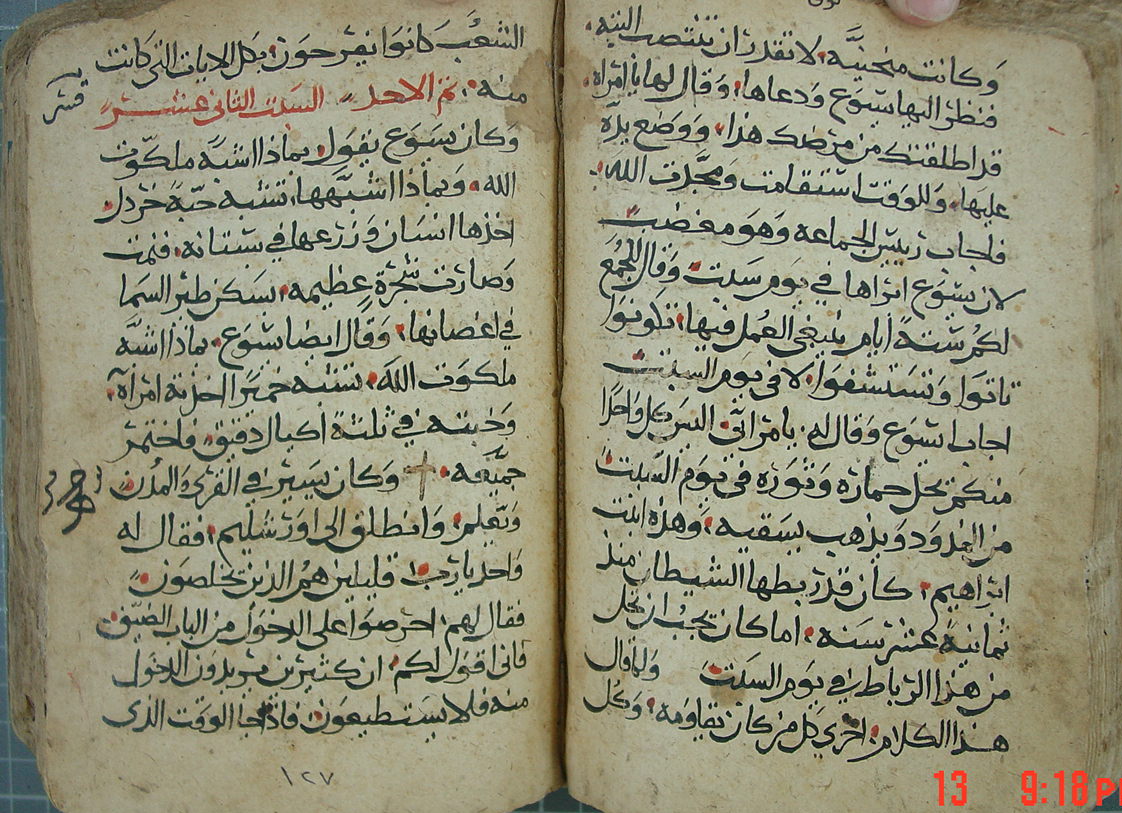 وكانت منحنيَّة، لا تقدر ان تنتصب البته.
فنظر اليها يسوع ودعاها. وقال لها يا امراه
قد اطلقتك من مرضك هذا، ووضع يده
عليها، وللوقت استقامت ومجَّدت الله.
فاجاب رييس الجماعه وهو مغضب
لان يسوع ابراها في يوم سبت، وقال للجمع
لكم ستة ايام ينبغي العمل فيها، تكونوا
تاتوا وتستشفوا لا في يوم السبت
اجاب يسوع وقال له. يا مراتي اليس كل واحدًا
منكم يحل حماره وثوره في يوم السبت
من المدود ويذهب يسقيه، وهذه ابنت
ابراهيم، كان قد ربطها الشيطان منذ
ثمانية عشر سنه، اما كان يجب ان تحل
من هذا الرباط في يوم السبت ولما قال
هذا الكلام، اخزي كل من كان يقاومه، وكل
الشعب كانوا يفرحون، بكل الايات التي كانت
منه. تم الاحد السبت الثاني عشر
وكان يسوع يقول، بماذا اشبّه ملكوت
الله. وبماذا اشبّهها، تشبه حبّة خردل
اخذها انسان وزرعها في بستانه، فنمت
وصارت شجرة عظيمه، يسكن طير السما
في اغصانها، وقال ايضا يسوع، بماذا اشبّه
ملكوت الله، تشبه خميرًا اخذته امراه،
وخبته في ثلثة اكيال دقيق، فاختمر
جميعه. وكان يسير في القرى والمدن
ويعلم، وانطلق الى اورشليم، فقال له
واحد يارب قليلين هم الذين يخلصون
فقال لهم، احرصوا على الدخول من الباب الضيّق
فاني اقول لكم، ان كثيرين يريدون الدخول
منه فلا يستطيعون، فاذا جا الوقت الذي
١٢٧
13 9:18 P